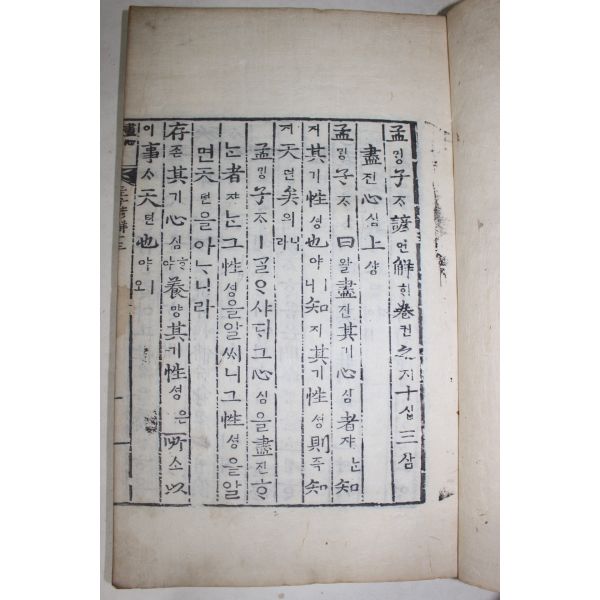 孟ᄆᆡᆼ子ᄌᆞ諺언解ᄒᆡ卷권之지十십三삼
盡진心심上샹
孟ᄆᆡᆼ子ᄌᆞㅣ曰왈盡진其기心심者쟈ᄂᆞᆫ知
지其기性셩也야ㅣ니知지其기性셩則즉知
지天텬矣의니라
孟ᄆᆡᆼ子ᄌᆞㅣᄀᆞᆯᄋᆞ샤ᄃᆡ그心심을盡진ᄒᆞ
ᄂᆞᆫ者쟈ᄂᆞᆫ그性셩을알씨니그性셩을알
면天텬을아ᄂᆞ니라
存존其기心심ᄒᆞ야養양其기性셩은所소以
이事ᄉᆞ天텬也야ㅣ오